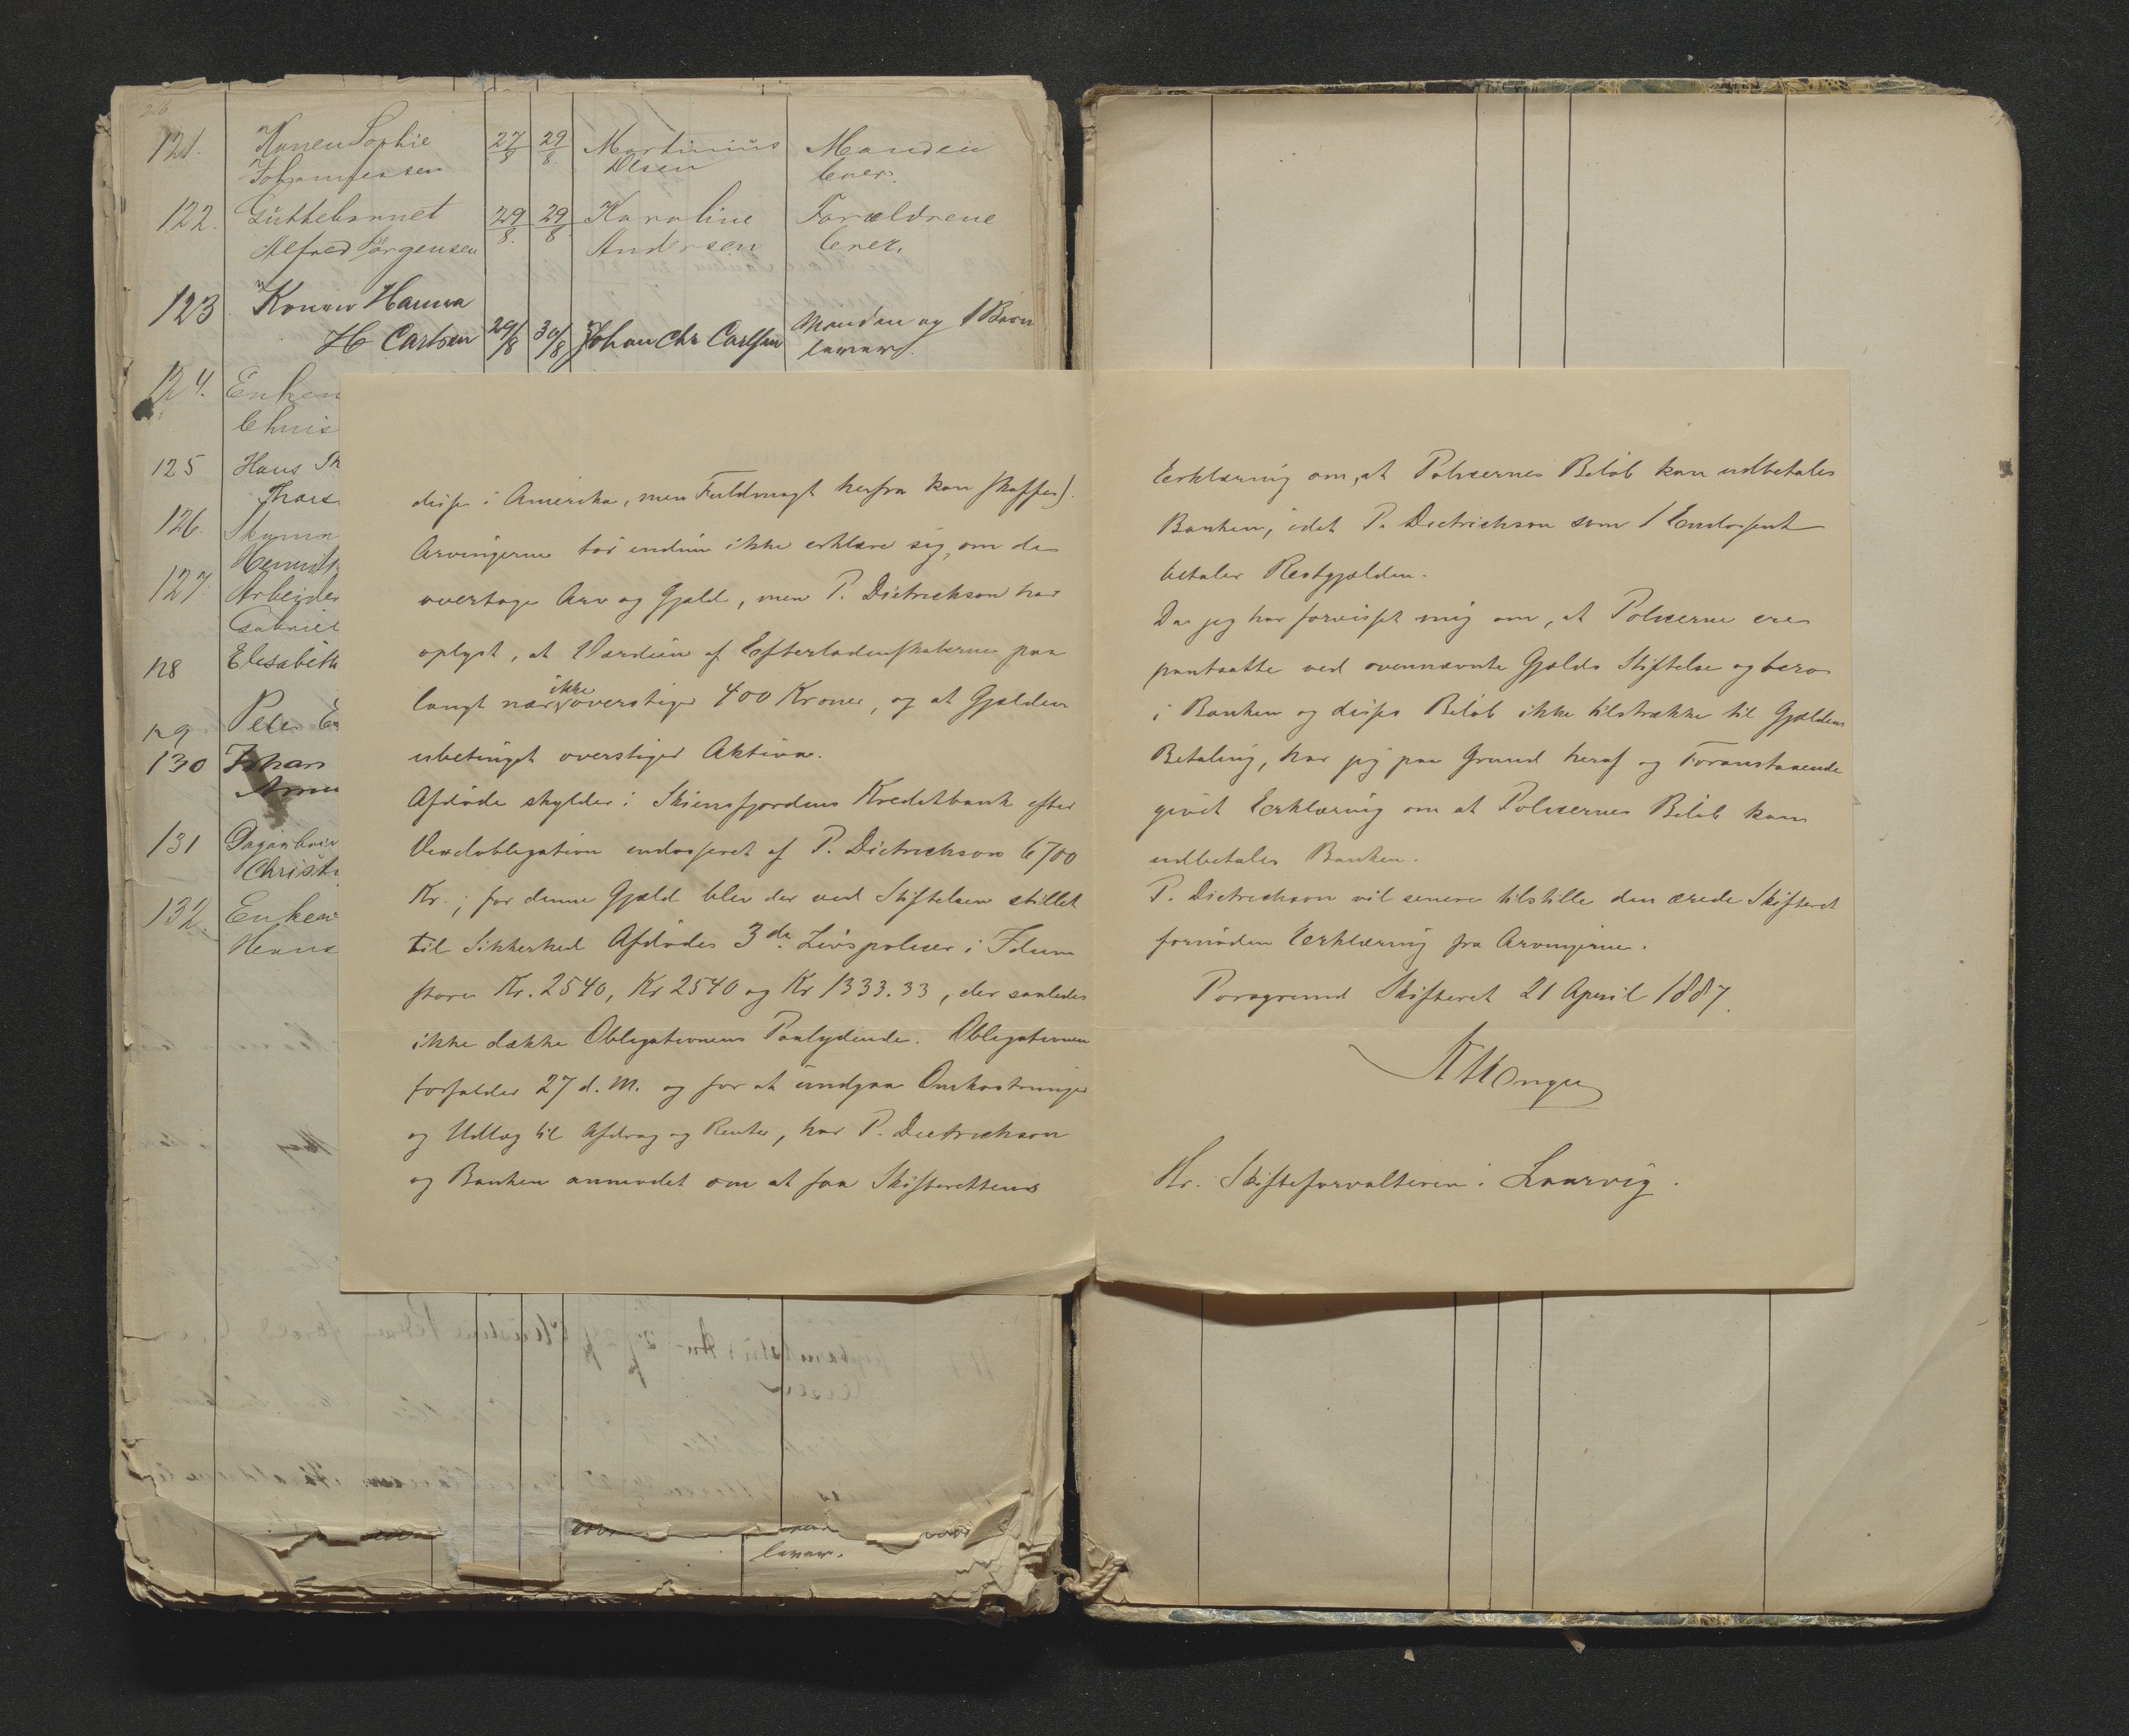 26
121. Konen Sophie 27/8 29/8. Martinius Manden
Johannessen Olsen lever.
122. Guttebarnet 29/8. 29/8 Karoline Forældrene
Alfred Jørgensen Andersen lever.
123 Konen Hanna
H Carlsen 29/8 30/8 Johan Chr Carlsen Manden og 1 Barn
lever.
124. Enken
Chris
125 Hans Th
Thors
126.
127. Arbeider
Gabriel
128 Elisabeth
129 Peder
130 Johan
131
Christi
132. Enken
disse i Amerika, men Fuldmagt herfra kan skaffes).
Arvingerne tør endnu ikke erklære sig, om de
overtage Arv og Gjæld, men P. Dietrichson har
oplyst, at Værdien af Efterladenskaberne paa
langt nær ikke overstiger 400 Kroner, og at Gjælden
ubetinget overstiger Aktiva.
Afdøde skylder i Skiensfjordens Kreditbank efter
Vexelobligation endosseret af P. Dietrichson 6700
Kr.; for denne Gjæld blev der ved Stiftelsen stillet
til Sikkerhed Afdødes 3de Livspolicer i Idun
store Kr. 2540, Kr 2540 og Kr 1333.33, der saaledes
ikke dække Obligationens Paalydende. Obligationen
forfalder 27 d. M. og for at undgaa Omkostninger
og Udlæg til Afdrag og Renter, har P. Dietrichson
og Banken anmodet om at faa Skifterettens
Erklæring om, at Policernes Beløb kan udbetales
Banken, idet P. Dietrichson som Endossent
betaler Restgjælden.
Da jeg har forvisset mig om, at Policerne ere
pantsatte ved ovennævnte Gjælds Stiftelse og bero
i Banken og disses Beløb ikke tilstrække til Gjældens
Betaling, har jeg paa Grund heraf og Foranstaaende
givet Erklæring om at Policernes Beløb kan
udbetales Banken.
P. Dietrichson vil senere tilstille den ærede Skifteret
fornøden Erklæring fra Arvingerne.
Porsgrund Skifteret 21 April 1887.
Hr. Skifteforvalteren i Laurvig.
lever.